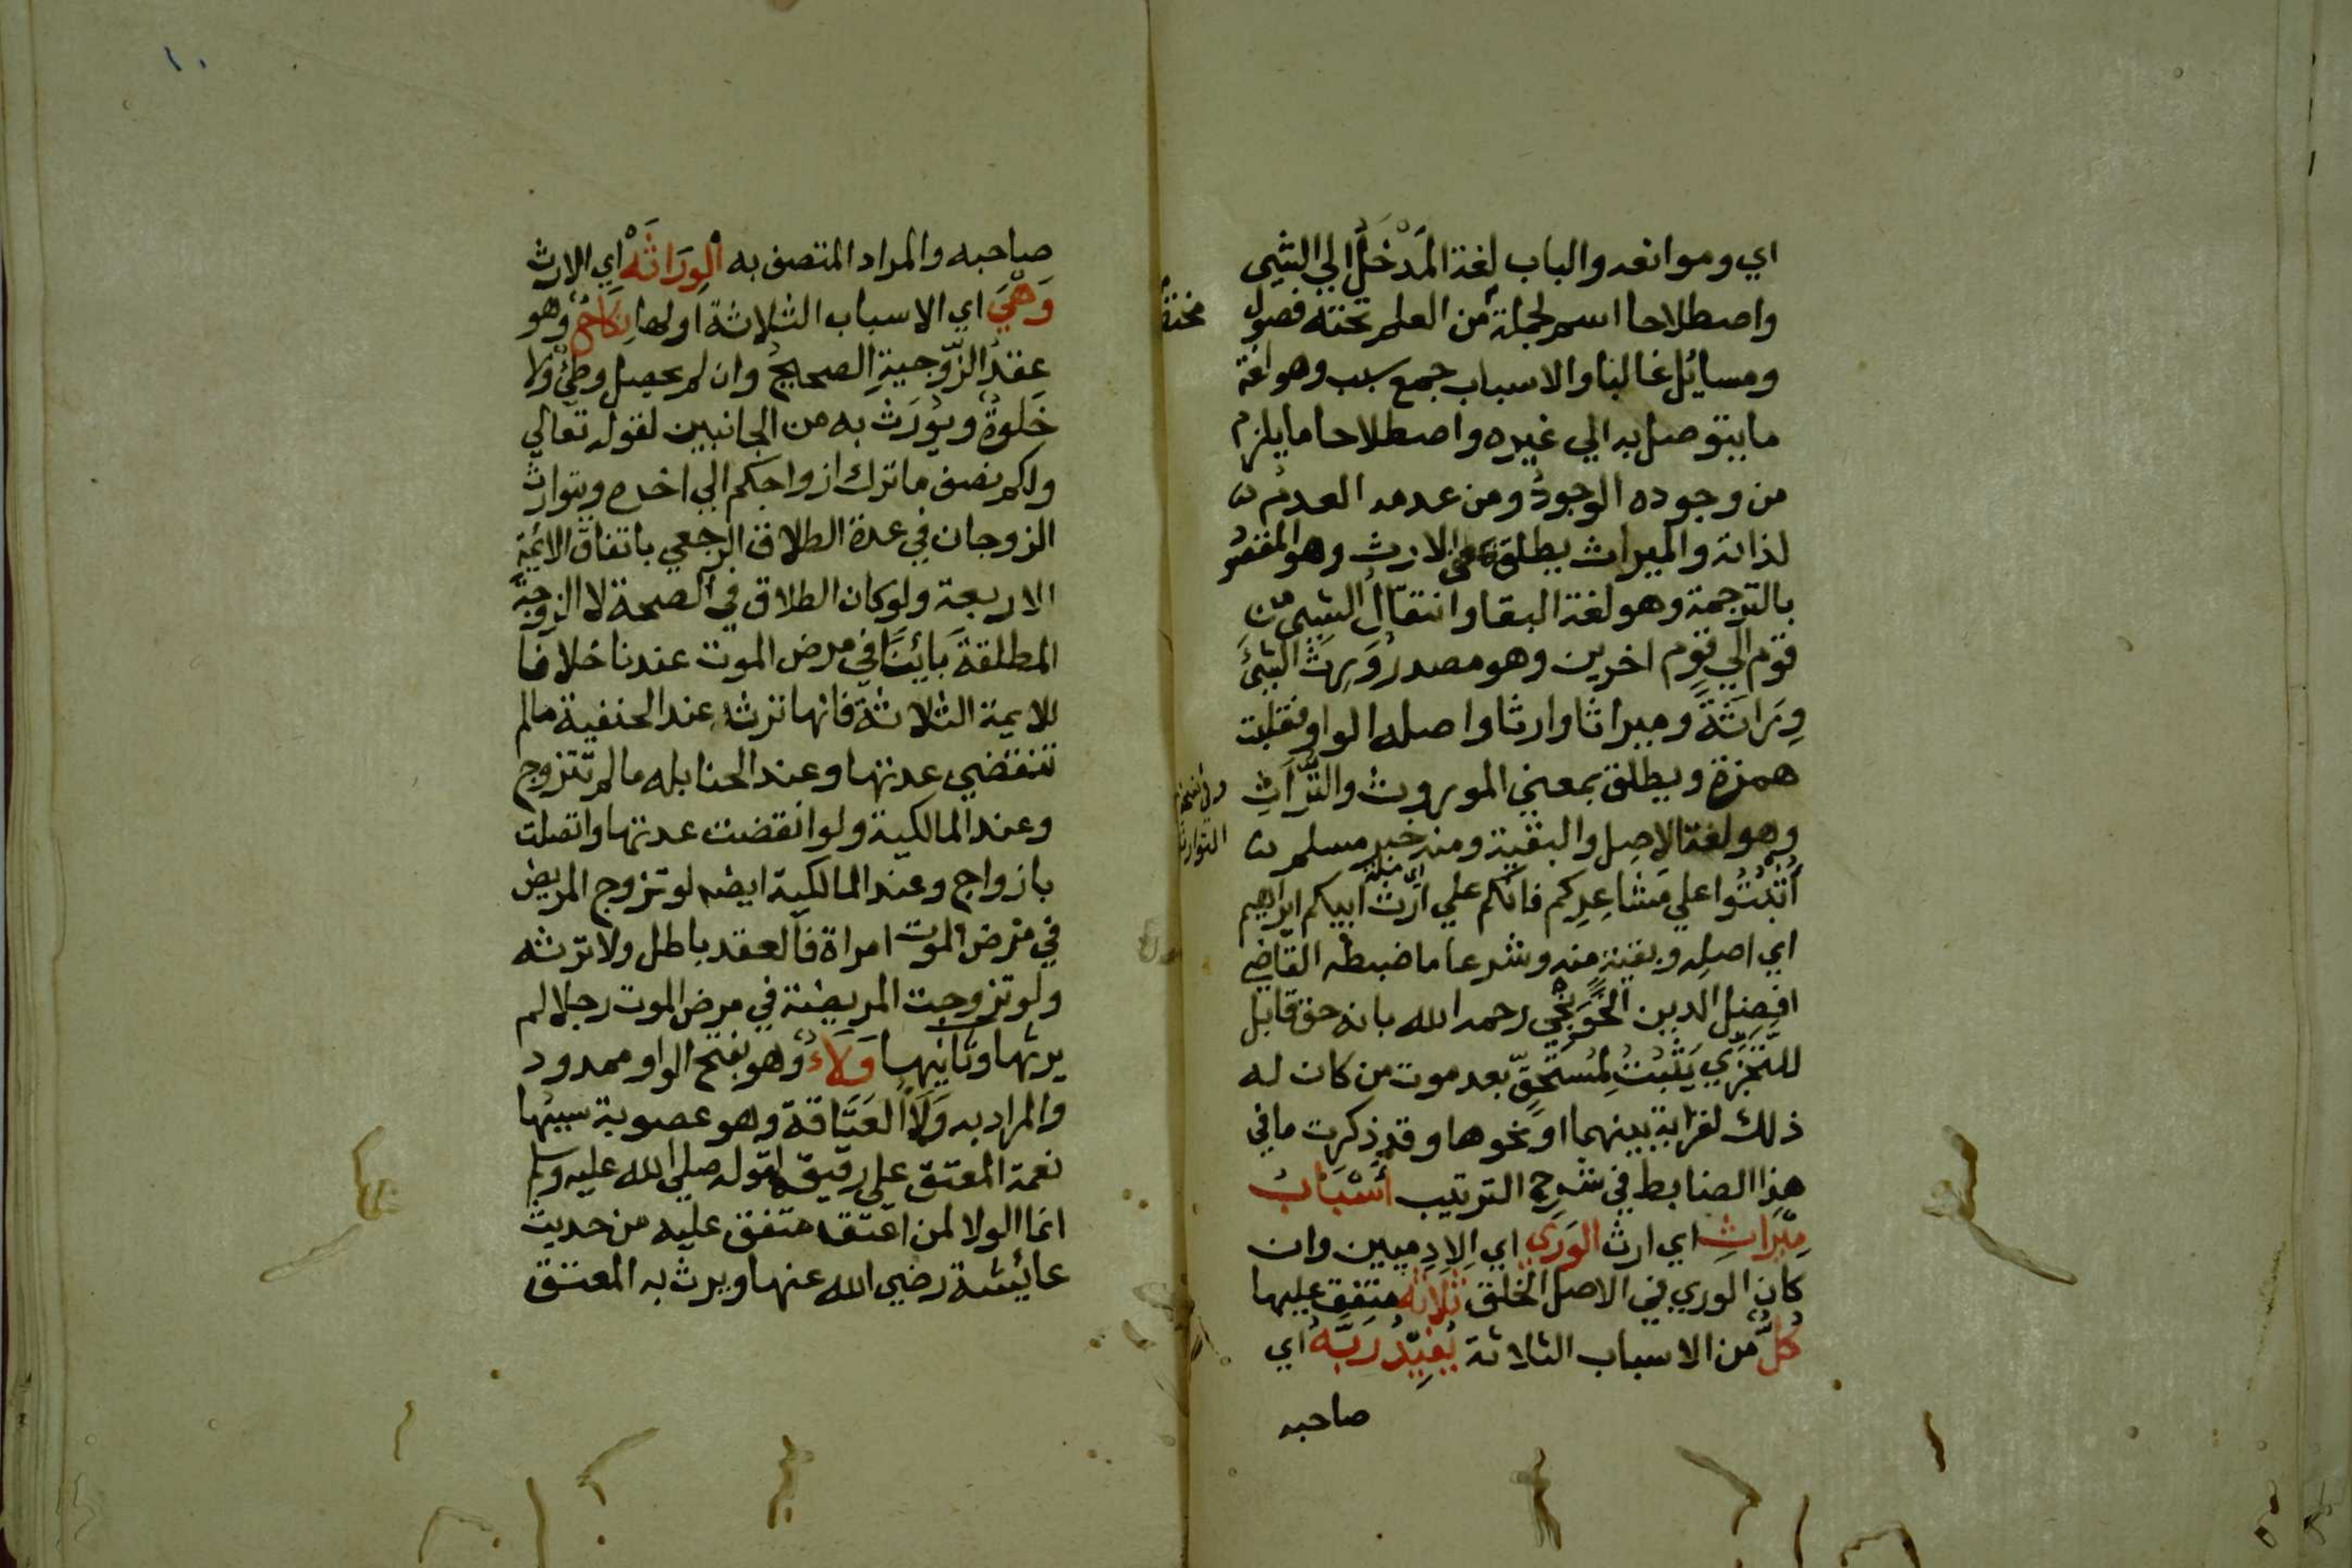 اي وموانعه والباب لغة المَدْخَلُ الي الشيى
واصطلاحا اسم لجملة من العلم تحته فصول
ومسائل غالبا والاسباب جمع سبب وهو لغة
ما يتوصل به الي غيره واصطلاحا ما يلزم
من وجوده الوجودُ ومن عدمه العدمُ
لذاته والميراث يطلق على الارث وهو المقصُو
بالترجمة وهو لغة البقا وانتقالُ الشيى من
قوم الي قوم اخرين وهو مصدرُ وَرِثَ الشيْىَ
وِرَاثَةً وميراثا وارثا واصله الواو فقلبت
همزة ويطلق بمعني الموروث والتُّرَاثِ
وفي نسخة
التوارث
وهو لغة الاصل والبقية ومنه خبر مسلم
اُثْبُتُوا علي مَشَاعِرِكم فانكم علي ارث ابيكم ابراهيم
اي اصله وبقية منه وشرعا ما ضبطه القاضي
افضل الدين الخَوَنْجِي رحمه الله بانه حق قابل
للتَّجَزِّي يَثْبُتُ لِمُسْتَحِقٍّ بعد موت من كان له
ذلك لقرابة بينهما او نحوها وقد ذكرت ما في
هذا الضابط في شرح الترتيب أَسْبَابُ
مِيْرَاثِ اي ارث الوَرَي اي الادميين وان
كان الوري في الاصل الخلق ثَلاثَه متفق عليها
كُلٌّ من الاسباب الثلاثة يُفِيْدُ رَبَّهُ اي
صاحبه
صاحبه والمراد المتصف به الوِرَاثَهْ اي الارث
وَهْيَ اي الاسباب الثلاثة اولها نِكَاحٌ وهو
عقدُ الزَّوجيةِ الصحيحُ وان لم يحصل وطئٌ ولا
خَلوةٌ ويُورَث به من الجانبين لقوله تعالي
ولكم نصف ما ترك ازواجكم الي اخره ويتوارث
الزوجان في عدة الطلاق الرجعي باتفاق الائمة
الاربعة ولو كان الطلاق في الصحة لا الزوجة
المطلقة بَائِنًا في مرض الموت عندنا خلافا
للايمة الثلاثة فانها ترثه عند الحنفية مالم
تنقضي عدتها وعند الحنابله مالم تتزوج
وعند المالكية ولو انقضت عدتها واتصلت
بازواج وعند المالكية ايضه لو تزوج المريض
في مرض الموت امراة فالعقد باطل ولا ترثه
ولو تزوجت المريضة في مرض الموت رجلا لم
يرثها وثانيها وَلَاءٌ وهو بفتح الواو ممدود
والمراد به وَلَأُ العَتَاقة وهو عصوبة سببُها
نعمة المعتق علي رقيقه لقوله صلي الله عليه وسلم
انما الولا لمن اعتق متفق عليه من حديث
عائيشة رضي الله عنها ويرث به المعتق
١٠